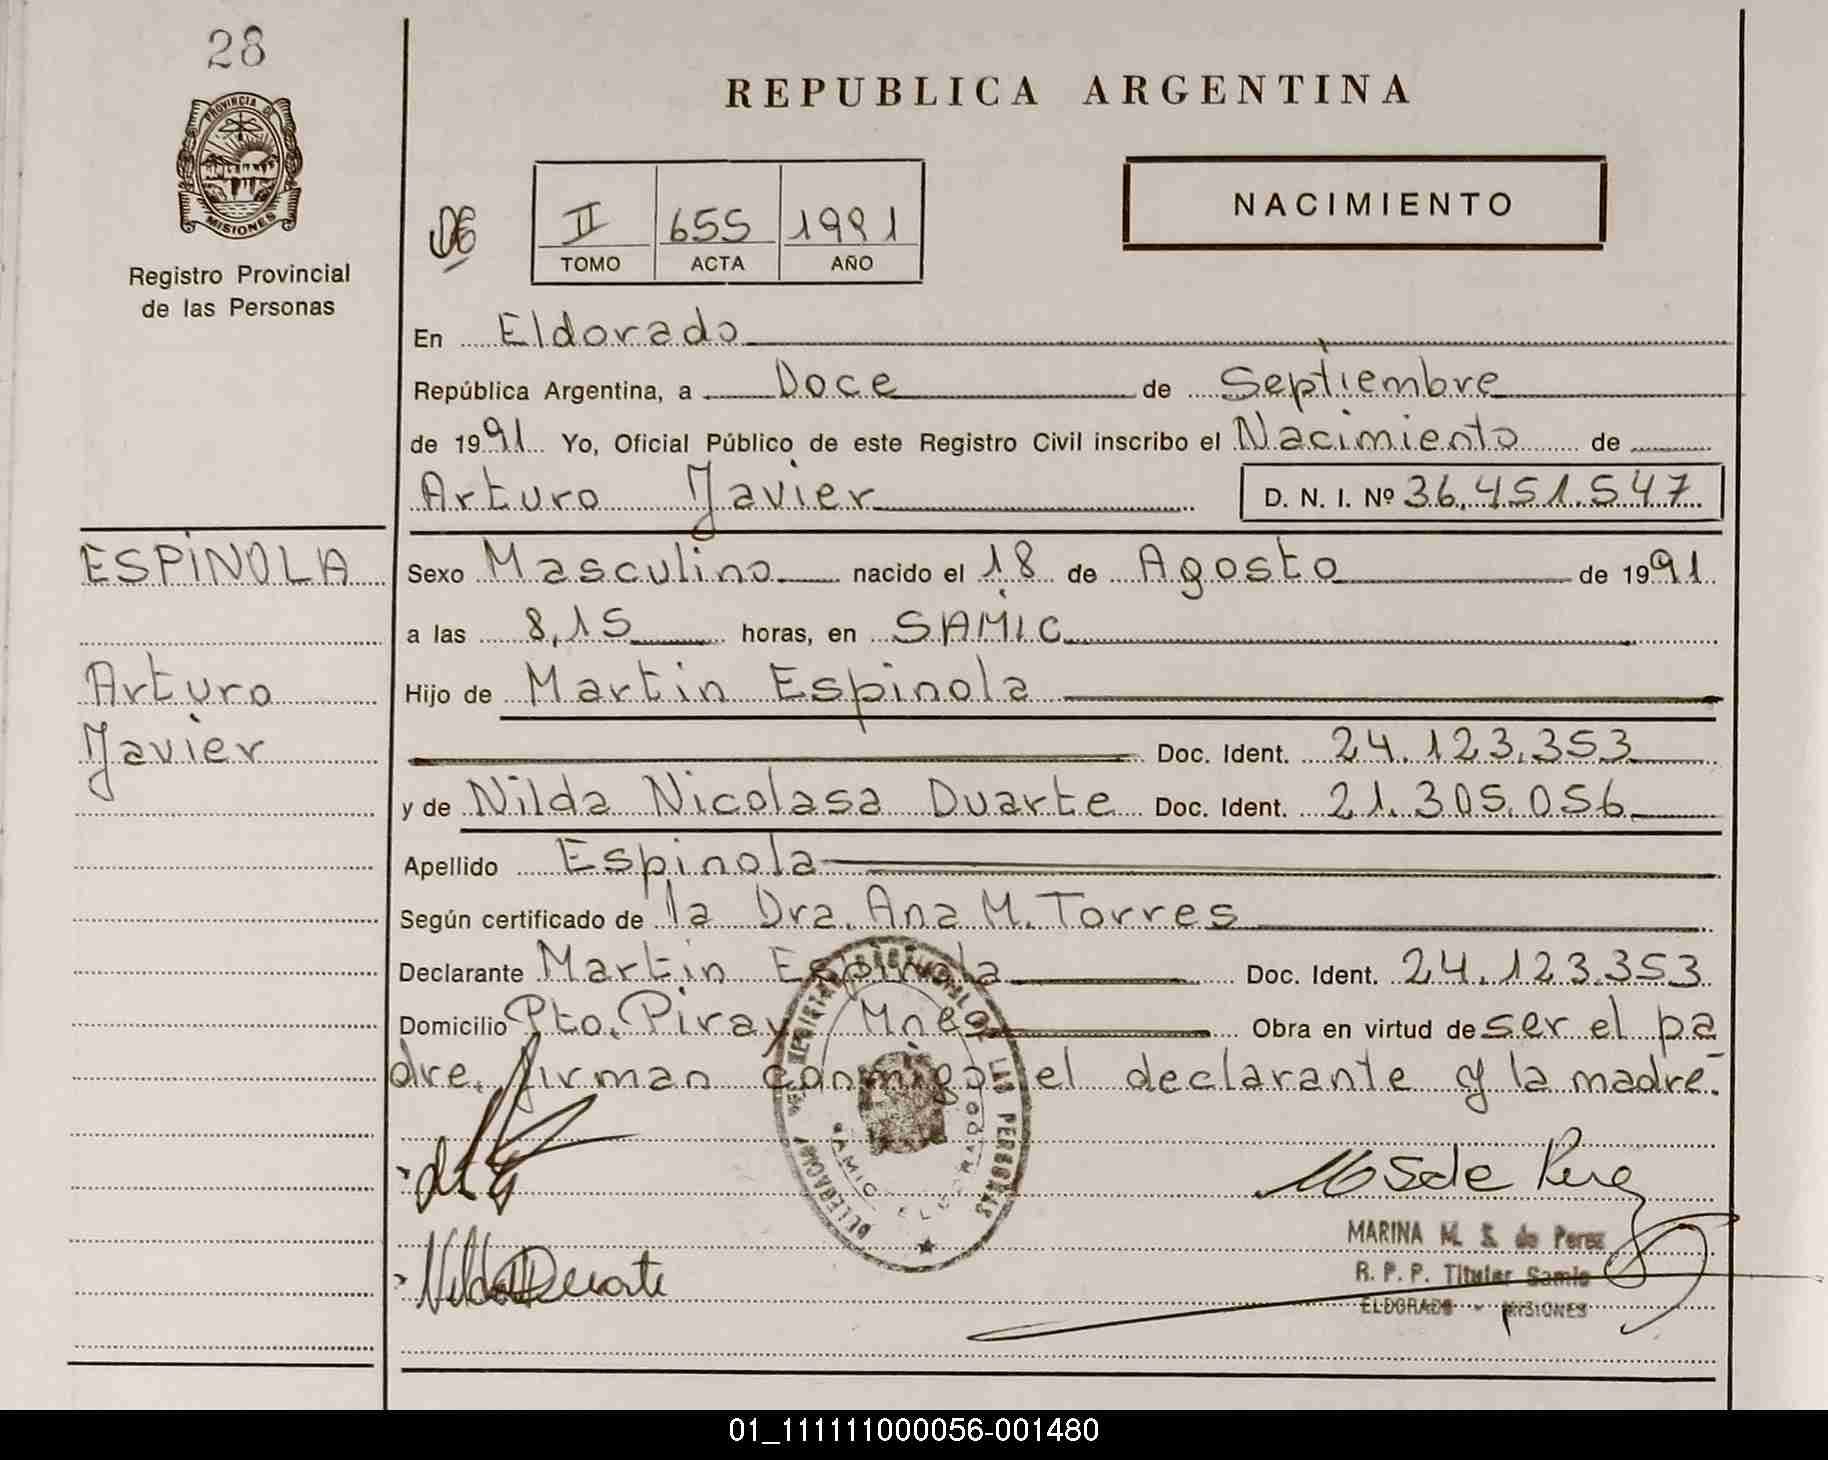 28
PROVINCIA DE
MISIONES
Registro Provincial
de las Personas
REPUBLICA ARGENTINA
NACIMIENTO
II 655 1991
TOMO ACTA AÑO
En Eldorado
República Argentina, a Doce de Septiembre
de 1991 Yo, Oficial Público de este Registro Civil inscribo el Nacimiento de
Arturo Javier D. N. I. Nº 36.451.547
ESPINOLA
Arturo
Javier
Sexo Masculino nacido el 18 de Agosto de 1991
a las 8,15 horas, en SAMIC
Hijo de Martin Espinola
Doc. Ident. 24.123.353
y de Nilda Nicolasa Duarte Doc. Ident. 21.305.056
Apellido Espinola
Según certificado de la Dra. Ana M. Torres
Declarante Martin Espinola Doc. Ident. 24.123.353
Domicilio Pto. Piray Mnes Obra en virtud de ser el pa
dre, firman conmigo el declarante y la madre.-
LAS PERSONAS
DELEGACIA
SAMIC ELDORADO
Nilda Duarte
MARINA M. S. de Perez
R. P. P. Titular Samic
ELDORADO - MISIONES
01_111111000056-001480